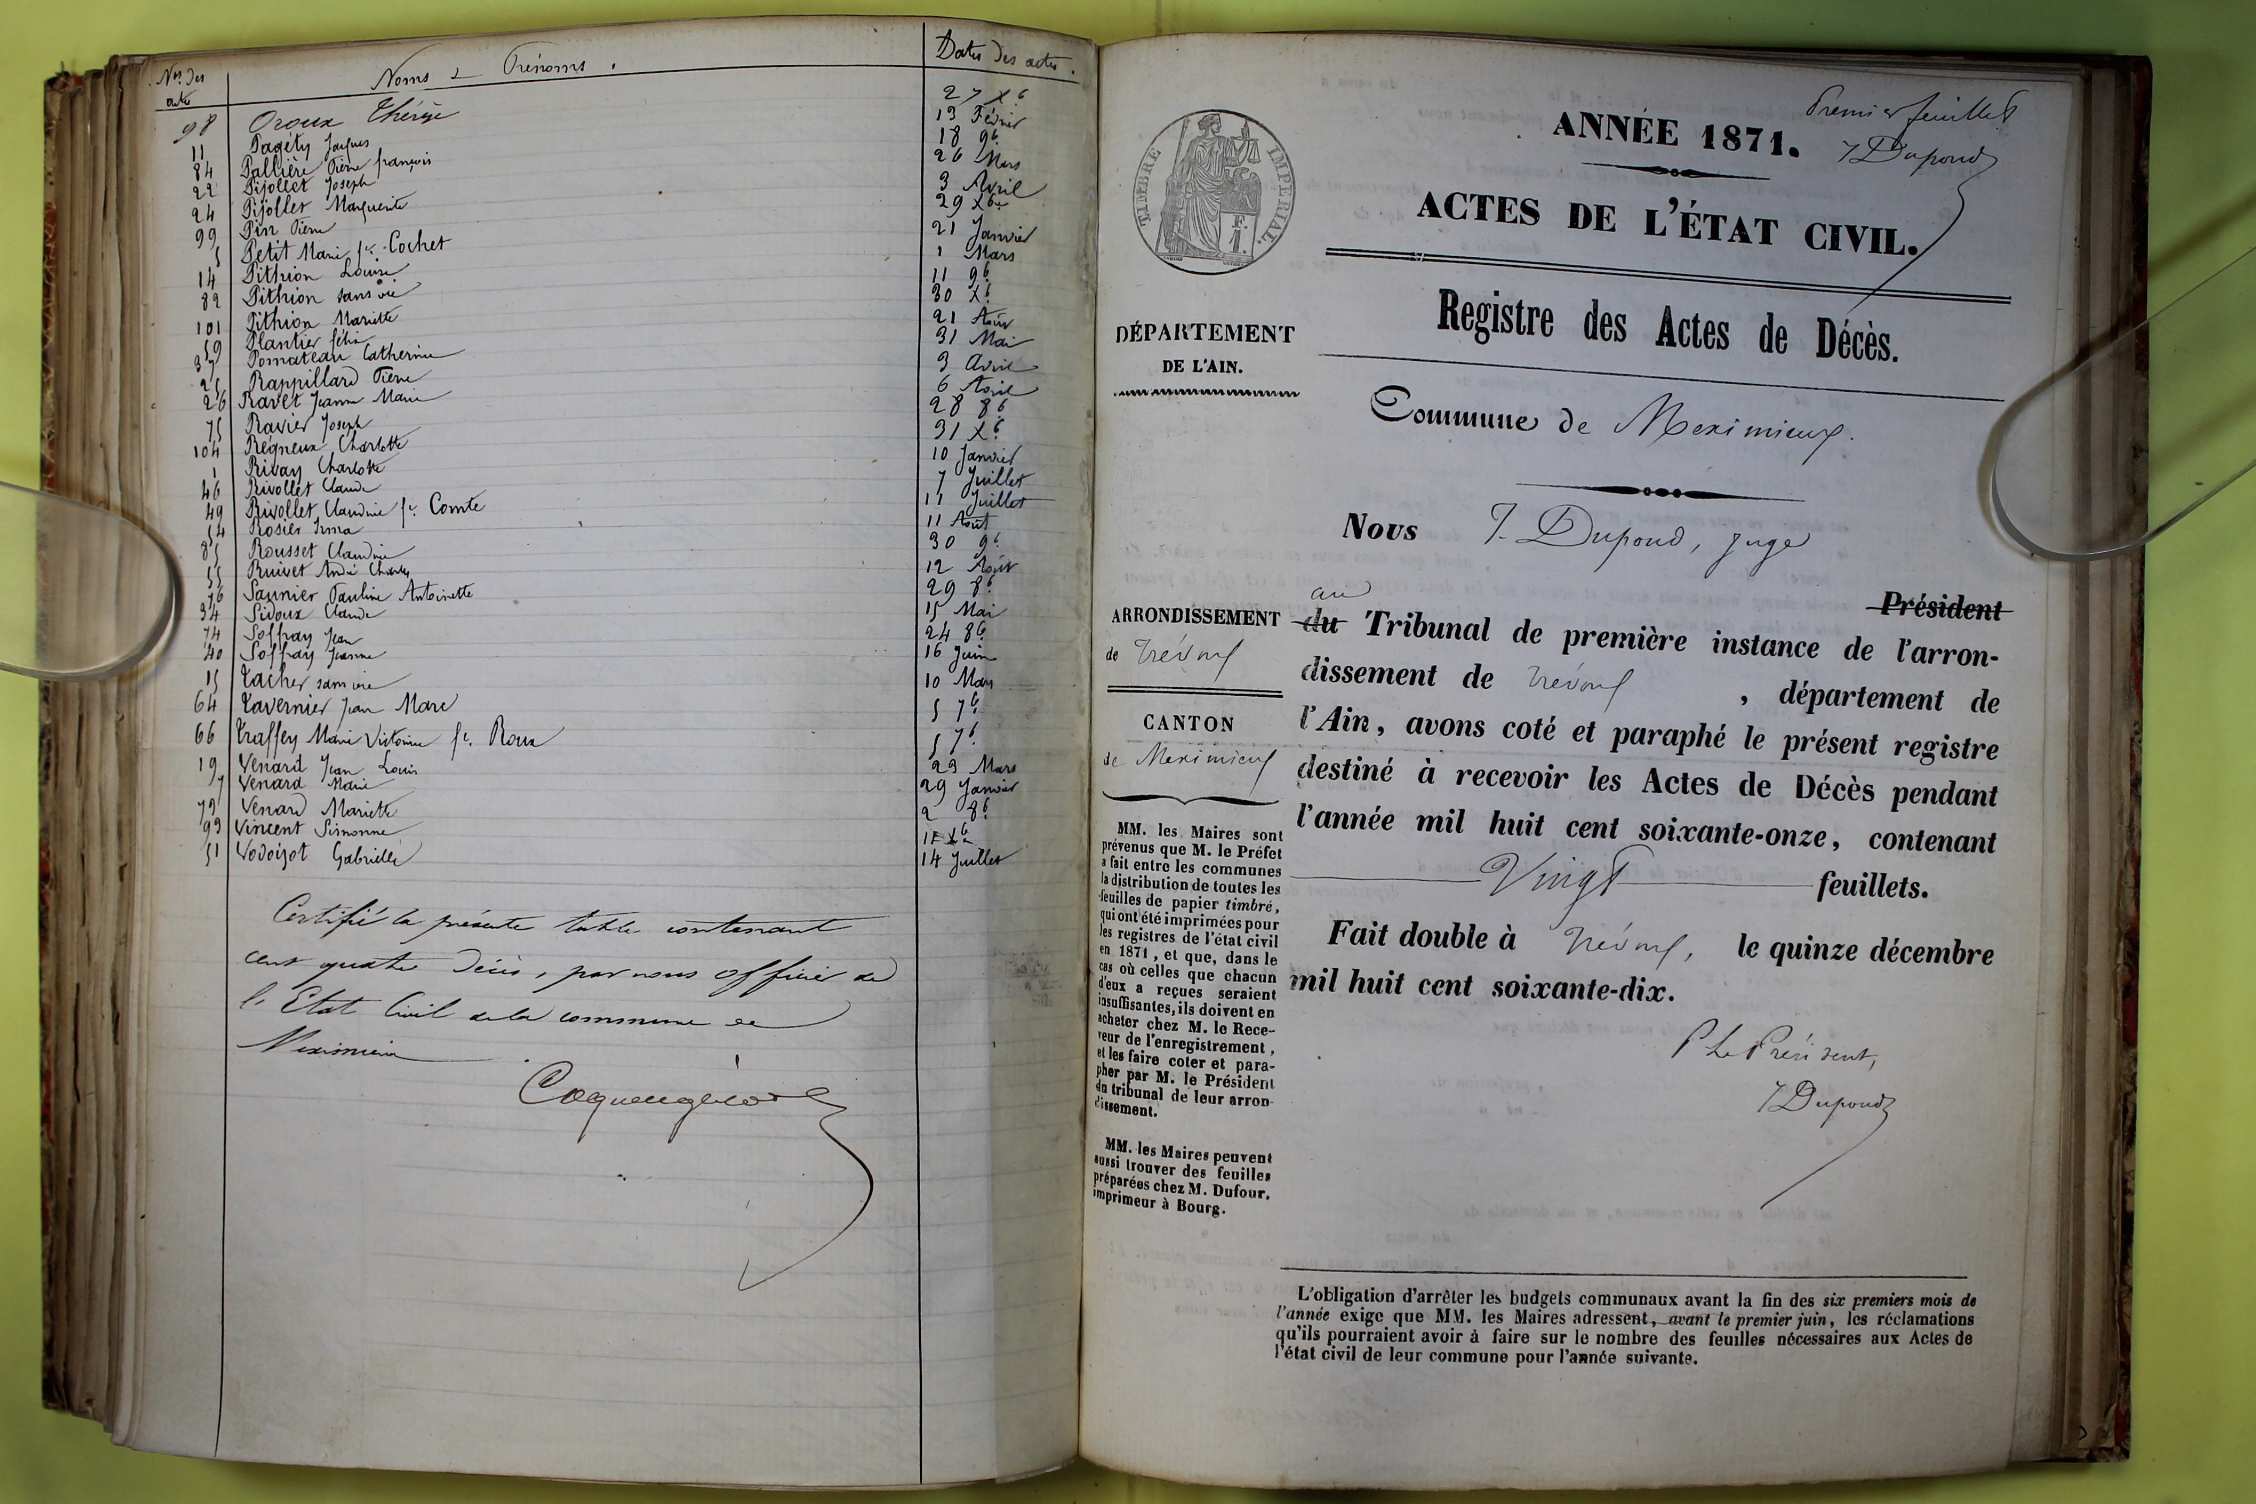 Nos des actes Noms et Prénoms. Dates des actes.
98 Oroux Thérèse 27 Xb
11 Pagéty Jacques 13 Février
84 Pallière Pierre françois 18 9b
22 Pijollet Joseph 26 Mars
24 Pijollet Marguerite 3 Avril
99 Pin Pierre 29 Xbre
5 Petit Marie fe. Cochet 21 Janvier
14 Pithion Louise 1 Mars
82 Pithion sans vie 11 9b
101 Pithion Mariette 30 Xb
59 Plantier félix 21 Août
37 Pomateau Catherine 31 Mai
25 Rappillard Pierre 3 Avril
26 Ravet Jeanne Marie 6 Avril
75 Ravier Joseph 28 8b
104 Régneux Charlotte 31 Xb
1 Rivay Charlotte 10 Janvier
46 Rivollet Claude 7 Juillet
49 Rivollet Claudine fe. Comte 11 Juillet
54 Rosier Irma 11 Août
85 Rousset Claudine 30 9b
55 Ruivet André Charles 12 Août
76 Saunier Pauline Antoinette 29 8b
34 Sidoux Claude 15 Mai
74 Soffray Jean 24 8b
40 Soffray Jeanne 16 Juin
15 Tacher sans vie 10 Mars
64 Tavernier Jean Marc 5 7b
66 Traffey Marie Victoire fe. Roux 5 7b
19 Venard Jean Louis 23 Mars
7 Venard Marie 29 Janvier
72 Venard Mariette 2 8b
93 Vincent Simonne Xb
51 Vodoizot Gabrielle 14 Juillet
Certifié la présente table contenant
cent quatre décès, par nous officier de
l'Etat Civil de la commune de
Meximieux
Premier feuillet
J Dupond
ANNÉE 1871.
ACTES DE L'ÉTAT CIVIL.
TIMBRE IMPÉRIAL.
F.
1.
Registre des Actes de Décès.
DÉPARTEMENT
DE L'AIN.
Commune de Meximieux.
Nous J. Dupond, juge
Président
au
ARRONDISSEMENT
de Trévoux
du Tribunal de première instance de l'arron-
dissement de Trévoux, département de
l'Ain, avons coté et paraphé le présent registre
destiné à recevoir les Actes de Décès pendant
l'année mil huit cent soixante-onze, contenant
Vingt feuillets.
Fait double à Trévoux, le quinze décembre
mil huit cent soixante-dix.
P Le Président,
J Dupond
CANTON
de Meximieux
MM. les Maires sont
prévenus que M. le Préfet
a fait entre les communes
la distribution de toutes les
feuilles de papier timbré,
qui ont été imprimées pour
les registres de l'état civil
en 1871, et que, dans le
cas où celles que chacun
d'eux a reçues seraient
insuffisantes, ils doivent en
acheter chez M. le Rece-
veur de l'enregistrement,
et les faire coter et para-
pher par M. le Président
du tribunal de leur arron-
dissement.
MM. les Maires peuvent
aussi trouver des feuilles
préparées chez M. Dufour,
imprimeur à Bourg.
L'obligation d'arrêter les budgets communaux avant la fin des six premiers mois de
l'année exige que MM. les Maires adressent, avant le premier juin, les réclamations
qu'ils pourraient avoir à faire sur le nombre des feuilles nécessaires aux Actes de
l'état civil de leur commune pour l'année suivante.